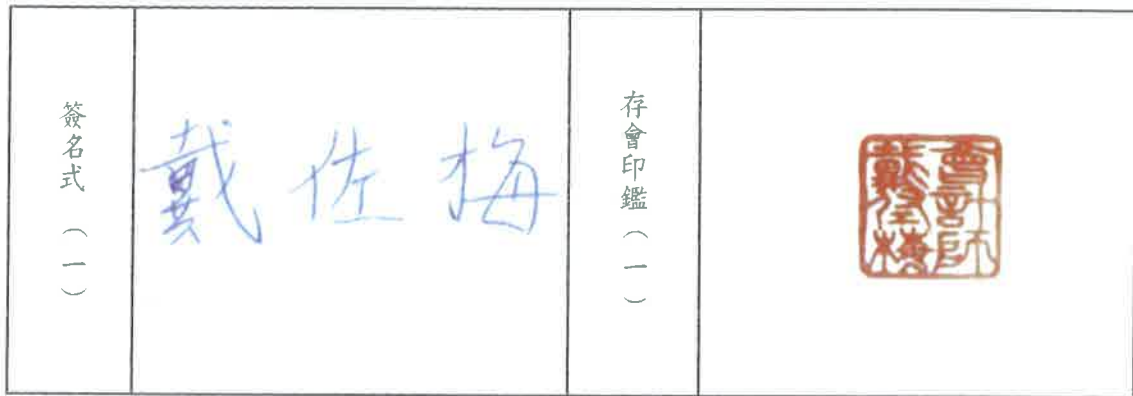 簽名式（一）
戴佐梅
存會印鑑（一）
會計師
戴佐梅